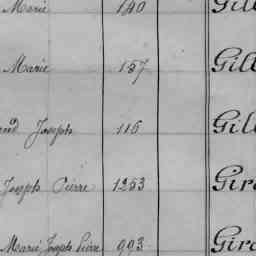 Marie 140 Gill
Marie 157 Gill
and Joseph 116 Gil
Joseph Pierre 1253 Gira
Marie Joseph Pierre 993 Gira